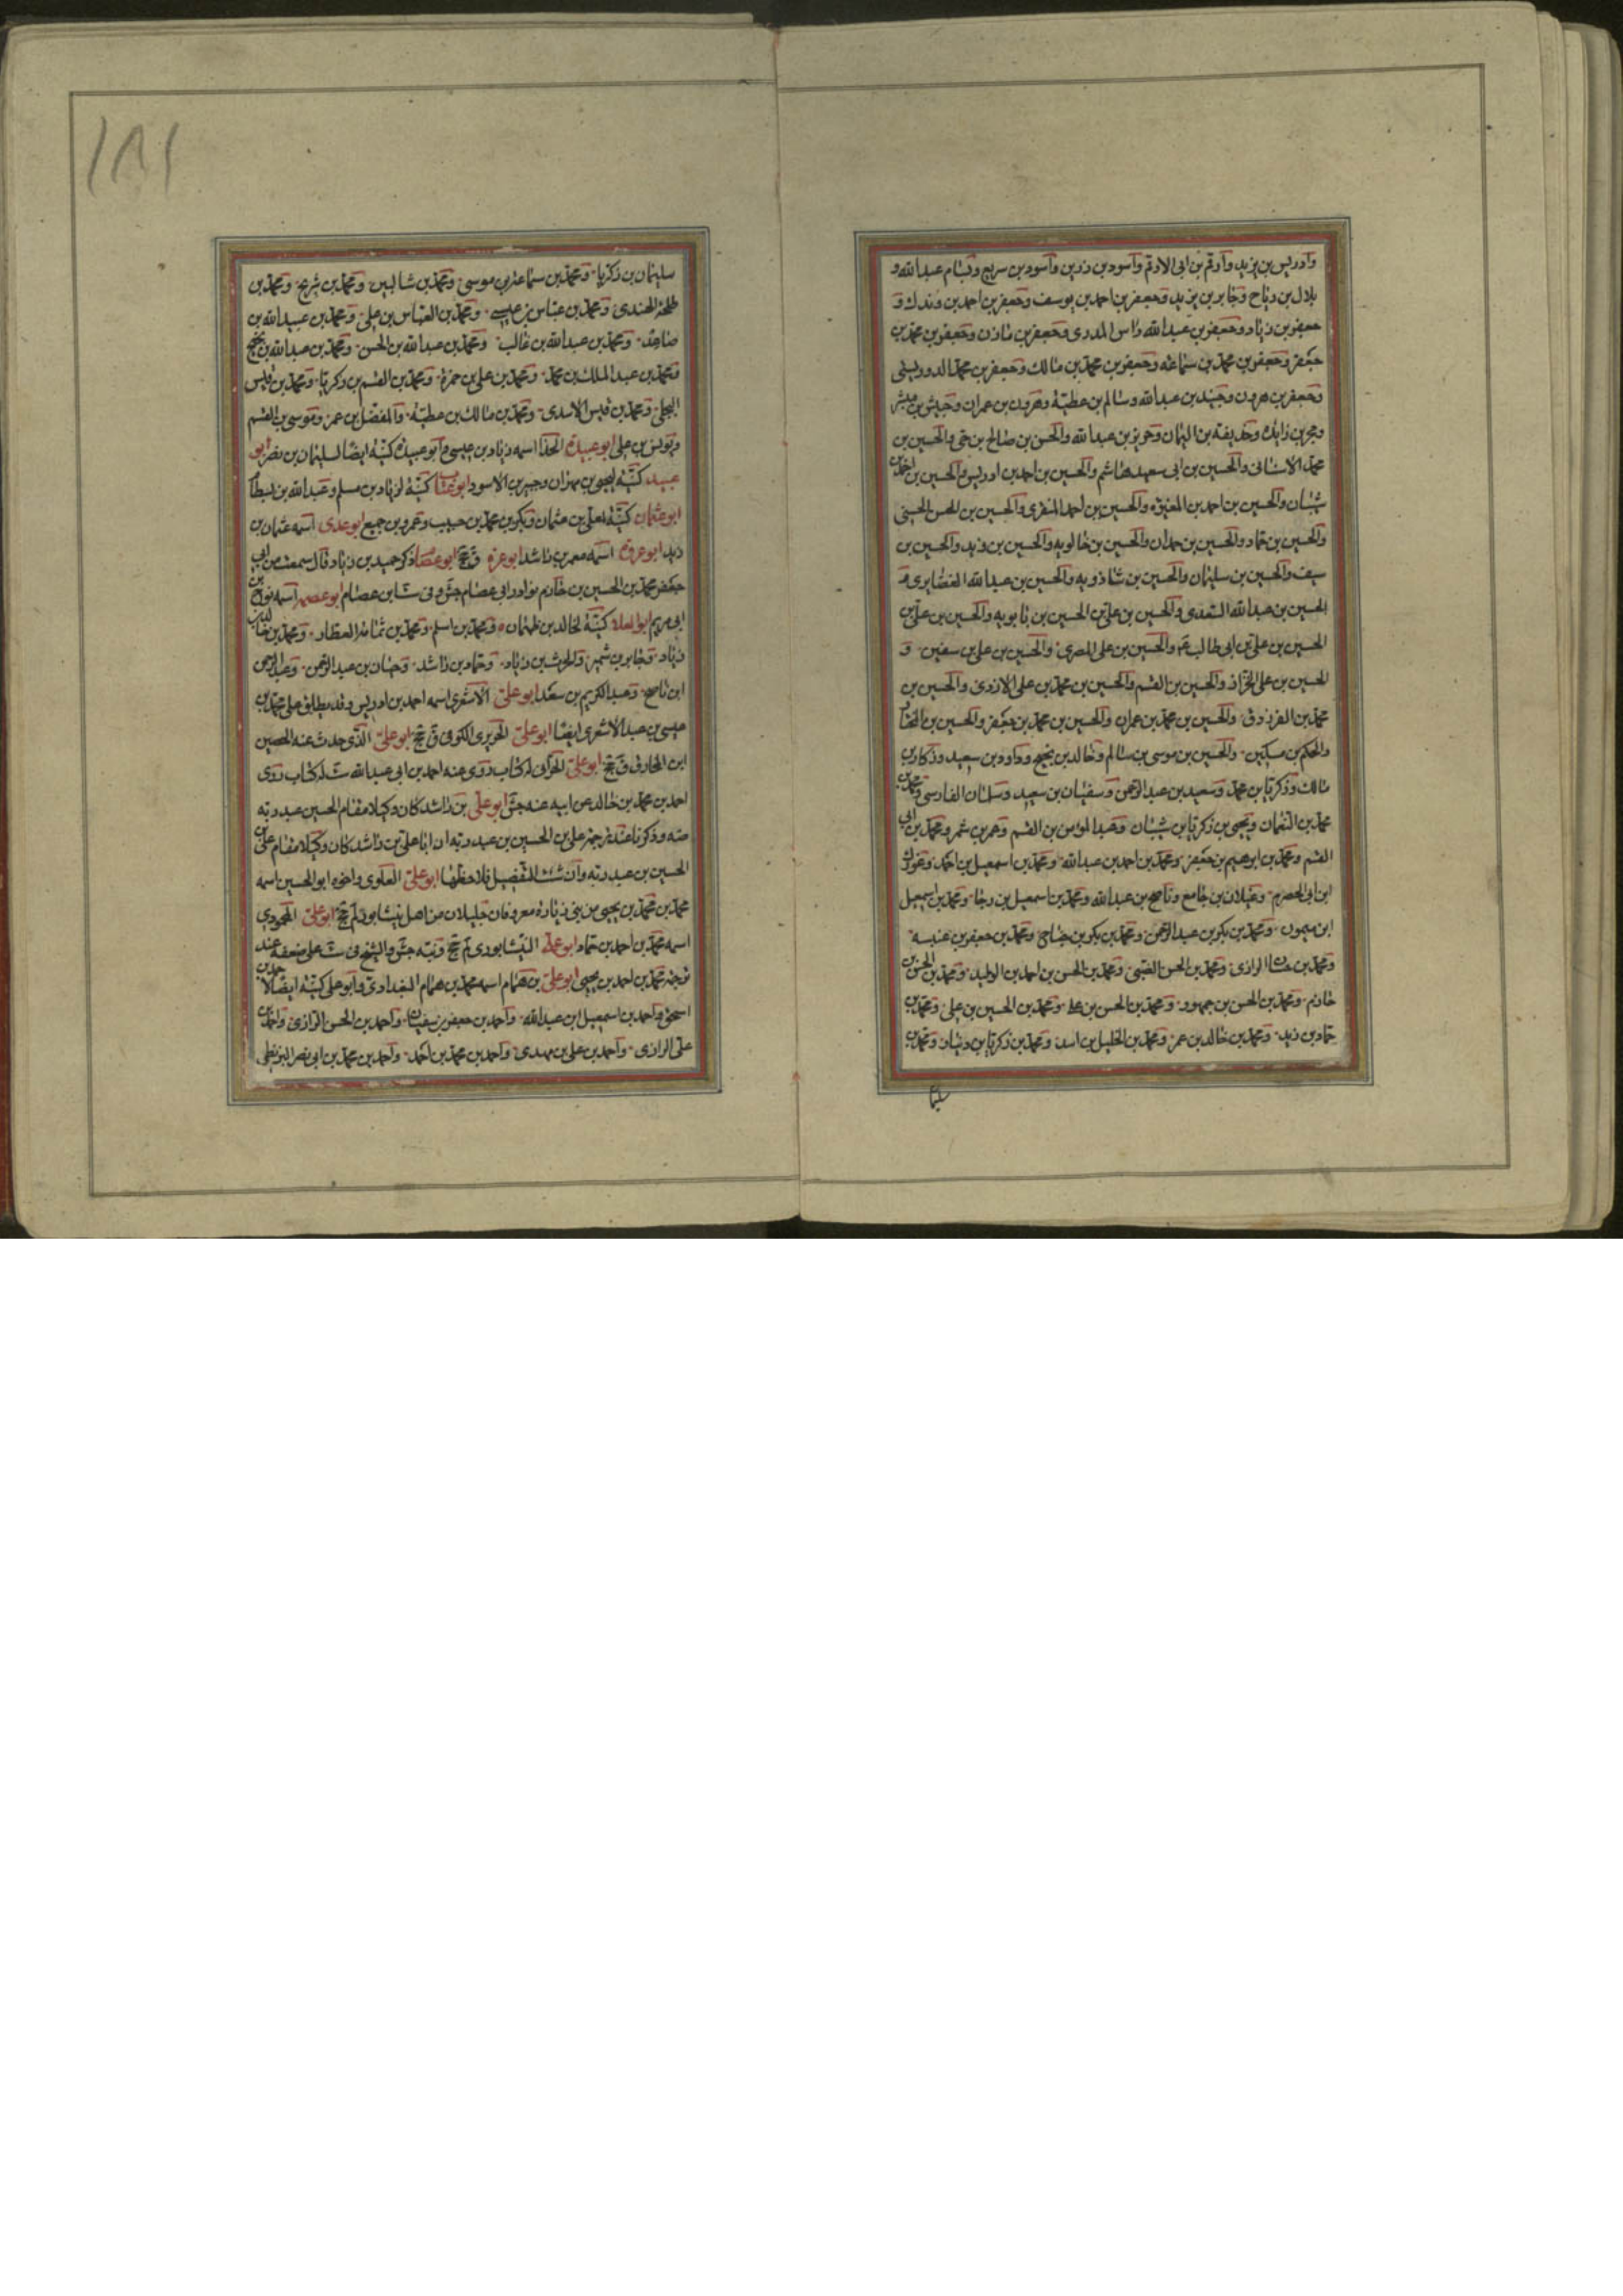 وادريس بن يزيد وارقم بن ابى الارقم واسود بن رزين واسود بن سريع وبسام عبد الله و
بلال بن رباح وجابر بن يزيد وجعفر بن احمد بن يوسف وجعفر بن احمد بن وندك و
جعفر بن زياد وجعفر بن عبد الله راس المدرى وجعفر بن مازن وجعفر بن محمد بن
جعفر وجعفر بن محمد بن سماعه وجعفر بن محمد بن مالك وجعفر بن محمد الدوريستى
وجعفر بن هرون وجنيد بن عبد الله وسالم بن عطية وهرون بن عمران وحبش بن مبشر
وحجر بن زايدة وحذيفة بن اليمان وحريز بن عبد الله والحسن بن صالح بن حى والحسين بن
محمد الاشنانى والحسين بن ابى سعيد هاشم والحسين بن احمد بن ادريس والحسين بن احمد بن
شيبان والحسين بن احمد بن المغيرة والحسين بن احمد المنقرى والحسين بن الحسن الحسينى
والحسين بن حماد والحسين بن حمدان والحسين بن خالويه والحسين بن زيد والحسين بن
سيف والحسين بن سليمان والحسين بن شاذويه والحسين بن عبد الله الغضايرى و
الحسين بن عبد الله السعدى والحسين بن على بن الحسين بن بابويه والحسين بن على بن
الحسين بن على بن ابى طالب ع والحسين بن على المصرى والحسين بن على بن سفين و
الحسين بن على الخزاز والحسين بن القسم والحسين بن محمد بن على الازدى والحسين بن
محمد بن الفرزدق والحسين بن محمد بن عمران والحسين بن محمد بن جعفر والحسين بن المختار
والحكم بن مسكين والحسين بن موسى بن سالم وخالد بن نجيح وداود بن سعيد وذكار بن
مالك وزكريا بن محمد وسعيد بن عبد الرحمن وسفيان بن سعيد وسلمان الفارسى ومحمد بن
محمد بن النعمان ويحيى بن زكريا بن شيبان وعبد المؤمن بن القسم وعمر بن شمر ومحمد بن ابى
القسم ومحمد بن ابرهيم بن جعفر ومحمد بن احمد بن عبد الله ومحمد بن اسمعيل بن احمد وغورك
ابن ابى الحصرم وغيلان بن جامع وناصح بن عبد الله ومحمد بن اسمعيل بن رجا ومحمد بن اسمعيل
ابن ميمون ومحمد بن بكر بن عبد الرحمن ومحمد بن بكر بن جناح ومحمد بن جعفر بن عنبسه
ومحمد بن حسان الرازى ومحمد بن الحسن القمى ومحمد بن الحسن بن احمد بن الوليد ومحمد بن الحسن بن
خازم ومحمد بن الحسن بن جمهور ومحمد بن الحسن بن على ومحمد بن الحسين بن على ومحمد بن
حماد بن زيد ومحمد بن خالد بن عمر ومحمد بن الخليل بن اسد ومحمد بن زكريا بن دينار ومحمد بن
سليمان بن زكريا ومحمد بن سماعة بن موسى ومحمد بن شاليس ومحمد بن شريح ومحمد بن
طلحة الهندى ومحمد بن عباس بن عيسى ومحمد بن العباس بن على ومحمد بن عبيد الله بن
صاعد ومحمد بن عبد الله بن غالب ومحمد بن عبد الله بن الحسن ومحمد بن عبد الله بن نجيح
ومحمد بن عبد الملك بن محمد ومحمد بن على بن حمزة ومحمد بن القسم بن زكريا ومحمد بن قيس
البجلى ومحمد بن قيس الاسدى ومحمد بن مالك بن عطية والمفضل بن عمر وموسى بن القسم
ويونس بن على ابو عبيدة الحذا اسمه زياد بن عيسى وابو عبيدة كنية ايضا لسليمان بن نصر ابو
عبيد كنية ليحيى بن مهران وجبير بن الاسود ابو عتاب كنية لزياد بن مسلم وعبد الله بن بسطام
ابو عثمان كنية لمعلى بن عثمان وبكر بن محمد بن حبيب وعمرو بن جميع ابو عدى اسمه عثمان بن
زيد ابو عروة اسمه معمر بن راشد ابو عزة ق جخ ابو عصام ذكر حميد بن زياد قال سمعت من ابى
جعفر محمد بن الحسين بن خازم نوادر ابى عصام جش وفى ست ابن عصام ابو عصمه اسمه نوح بن
ابى مريم ابو العلا كنية لخالد بن طهمان ومحمد بن اسلم ومحمد بن تمامة العطار ومحمد بن خباب
زياد وجابر بن شمير والحرث بن زياد وحماد بن راشد وحنان بن عبد الرحمن وعبد الرحمن
ابن ناصح وعبد الكريم بن سعد ابو على الاشعرى اسمه احمد بن ادريس وقد يطلق على محمد بن
عيسى بن عبد الاشعرى ايضا ابو على الحريرى الكوفى ق جخ ابو على الذى حدث عنه الحصين
ابن المخارق ق جخ ابو على الحرانى له كتاب روى عنه احمد بن ابى عبد الله ست له كتاب روى
احمد بن محمد بن خالد عن ابيه عنه جش ابو على بن راشد كان وكيلا مقام الحسين عبد ربه
منه وذكرنا عند ترجمة على بن الحسين بن عبد ربه ان ابا على بن راشد كان وكيلا مقام على بن
الحسين بن عبد ربه وان شئت التفصيل فلاحظها ابو على العلوى واخوه ابو الحسين اسمه
محمد بن محمد بن يحيى من بنى زبارة معروفان جليلان من اهل نيشابور لم جخ ابو على المحمودى
اسمه محمد بن احمد بن حماد ابو على النيشابورى لم جخ ونبه جش والشيخ فى ست على ضعفه عند
ترجمة محمد بن احمد بن يحيى ابو على بن همام اسمه محمد بن همام البغدادى وابو على كنية ايضا لاحمد بن
اسحق واحمد بن اسمعيل ابن عبد الله واحمد بن جعفر بن سفيان واحمد بن الحسن الرازى واحمد بن
على الرازى واحمد بن على بن مهدى واحمد بن محمد بن احمد واحمد بن محمد بن ابى نصر البزنطى